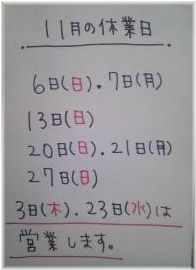 11月の休業日
6日(日).7日(月)
13日(日)
20日(日).21日(月)
27日(日)
3日(木).23日(水)は
営業します。